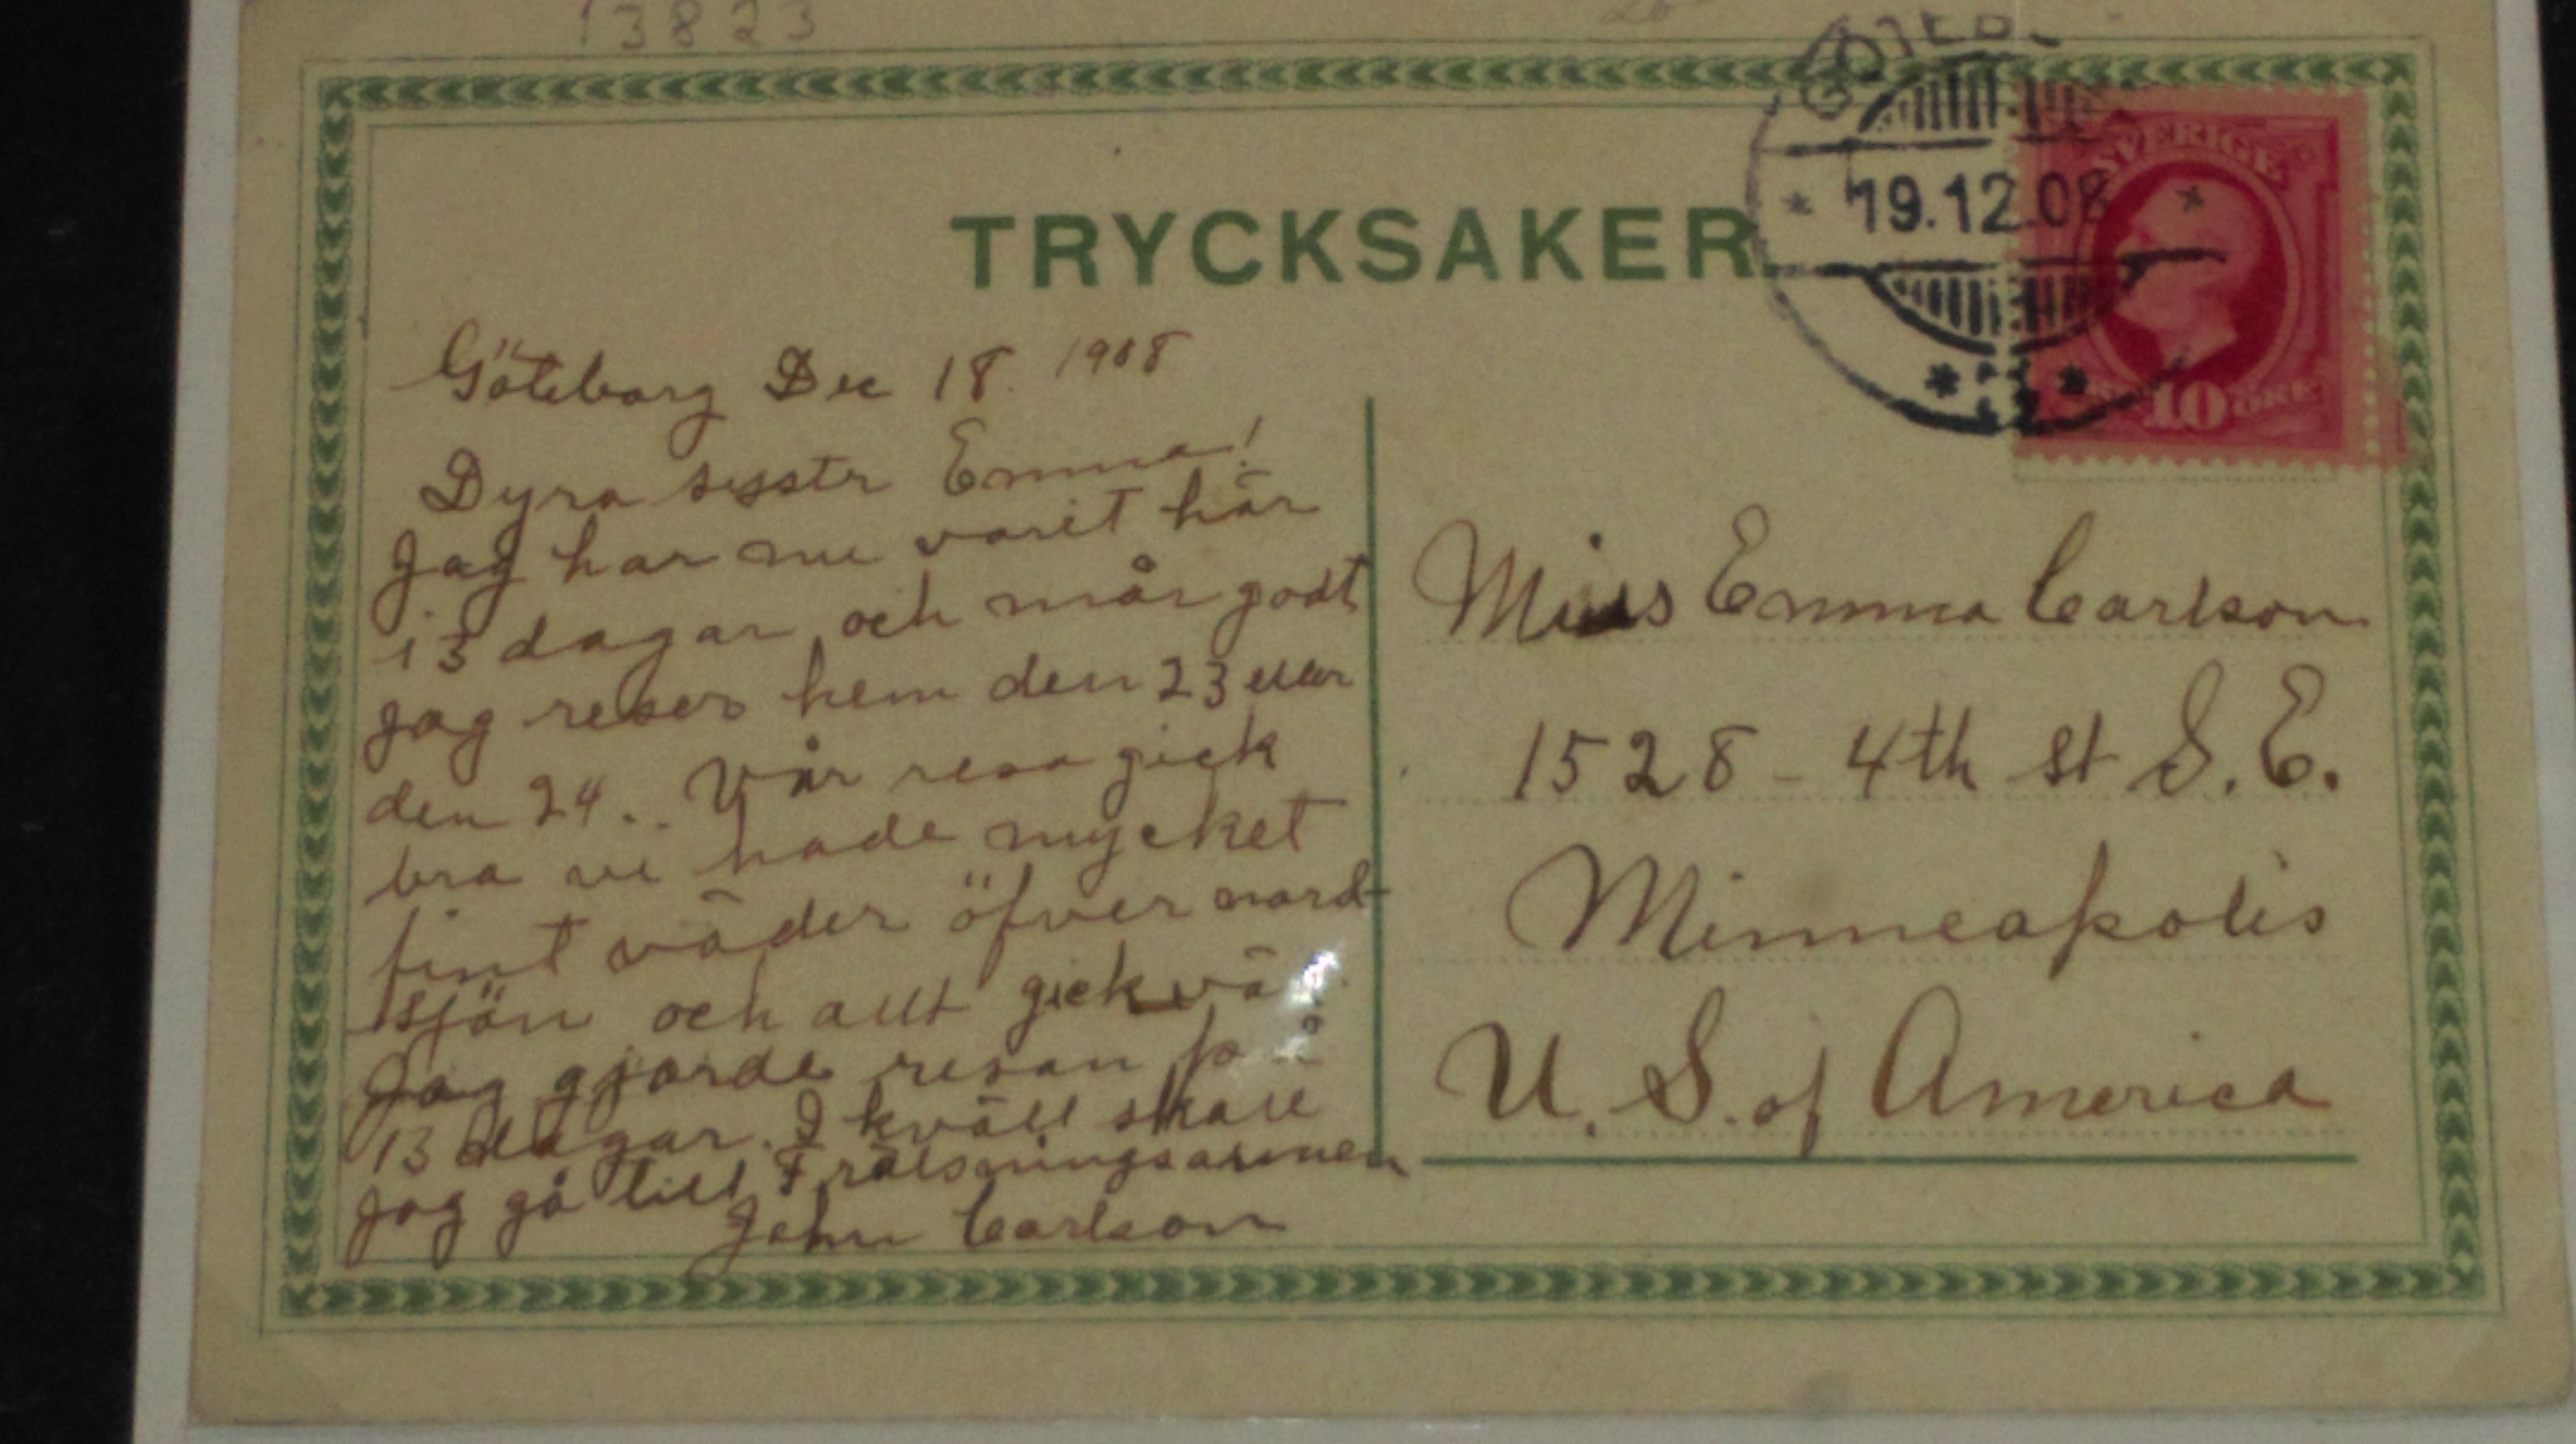 13823
GÖTEB
19.12.08
SVERIGE
10 ÖRE
TRYCKSAKER
Göteborg Dec 18. 1908
Dyra sysstr Emma!
Jag har nu varit här
13 dagar och mår godt
jag reser hem den 23 eller
den 24.. Vår resa gick
bra vi hade mycket
fint väder öfver nord-
sjön och allt gick
Jag gjorde resan på
13 dagar. I kväll skall
jag gå till Frälsningsarmen
John Carlson
Miss Emma Carlson
1528 - 4th st S.E.
Minneapolis
U.S. of America